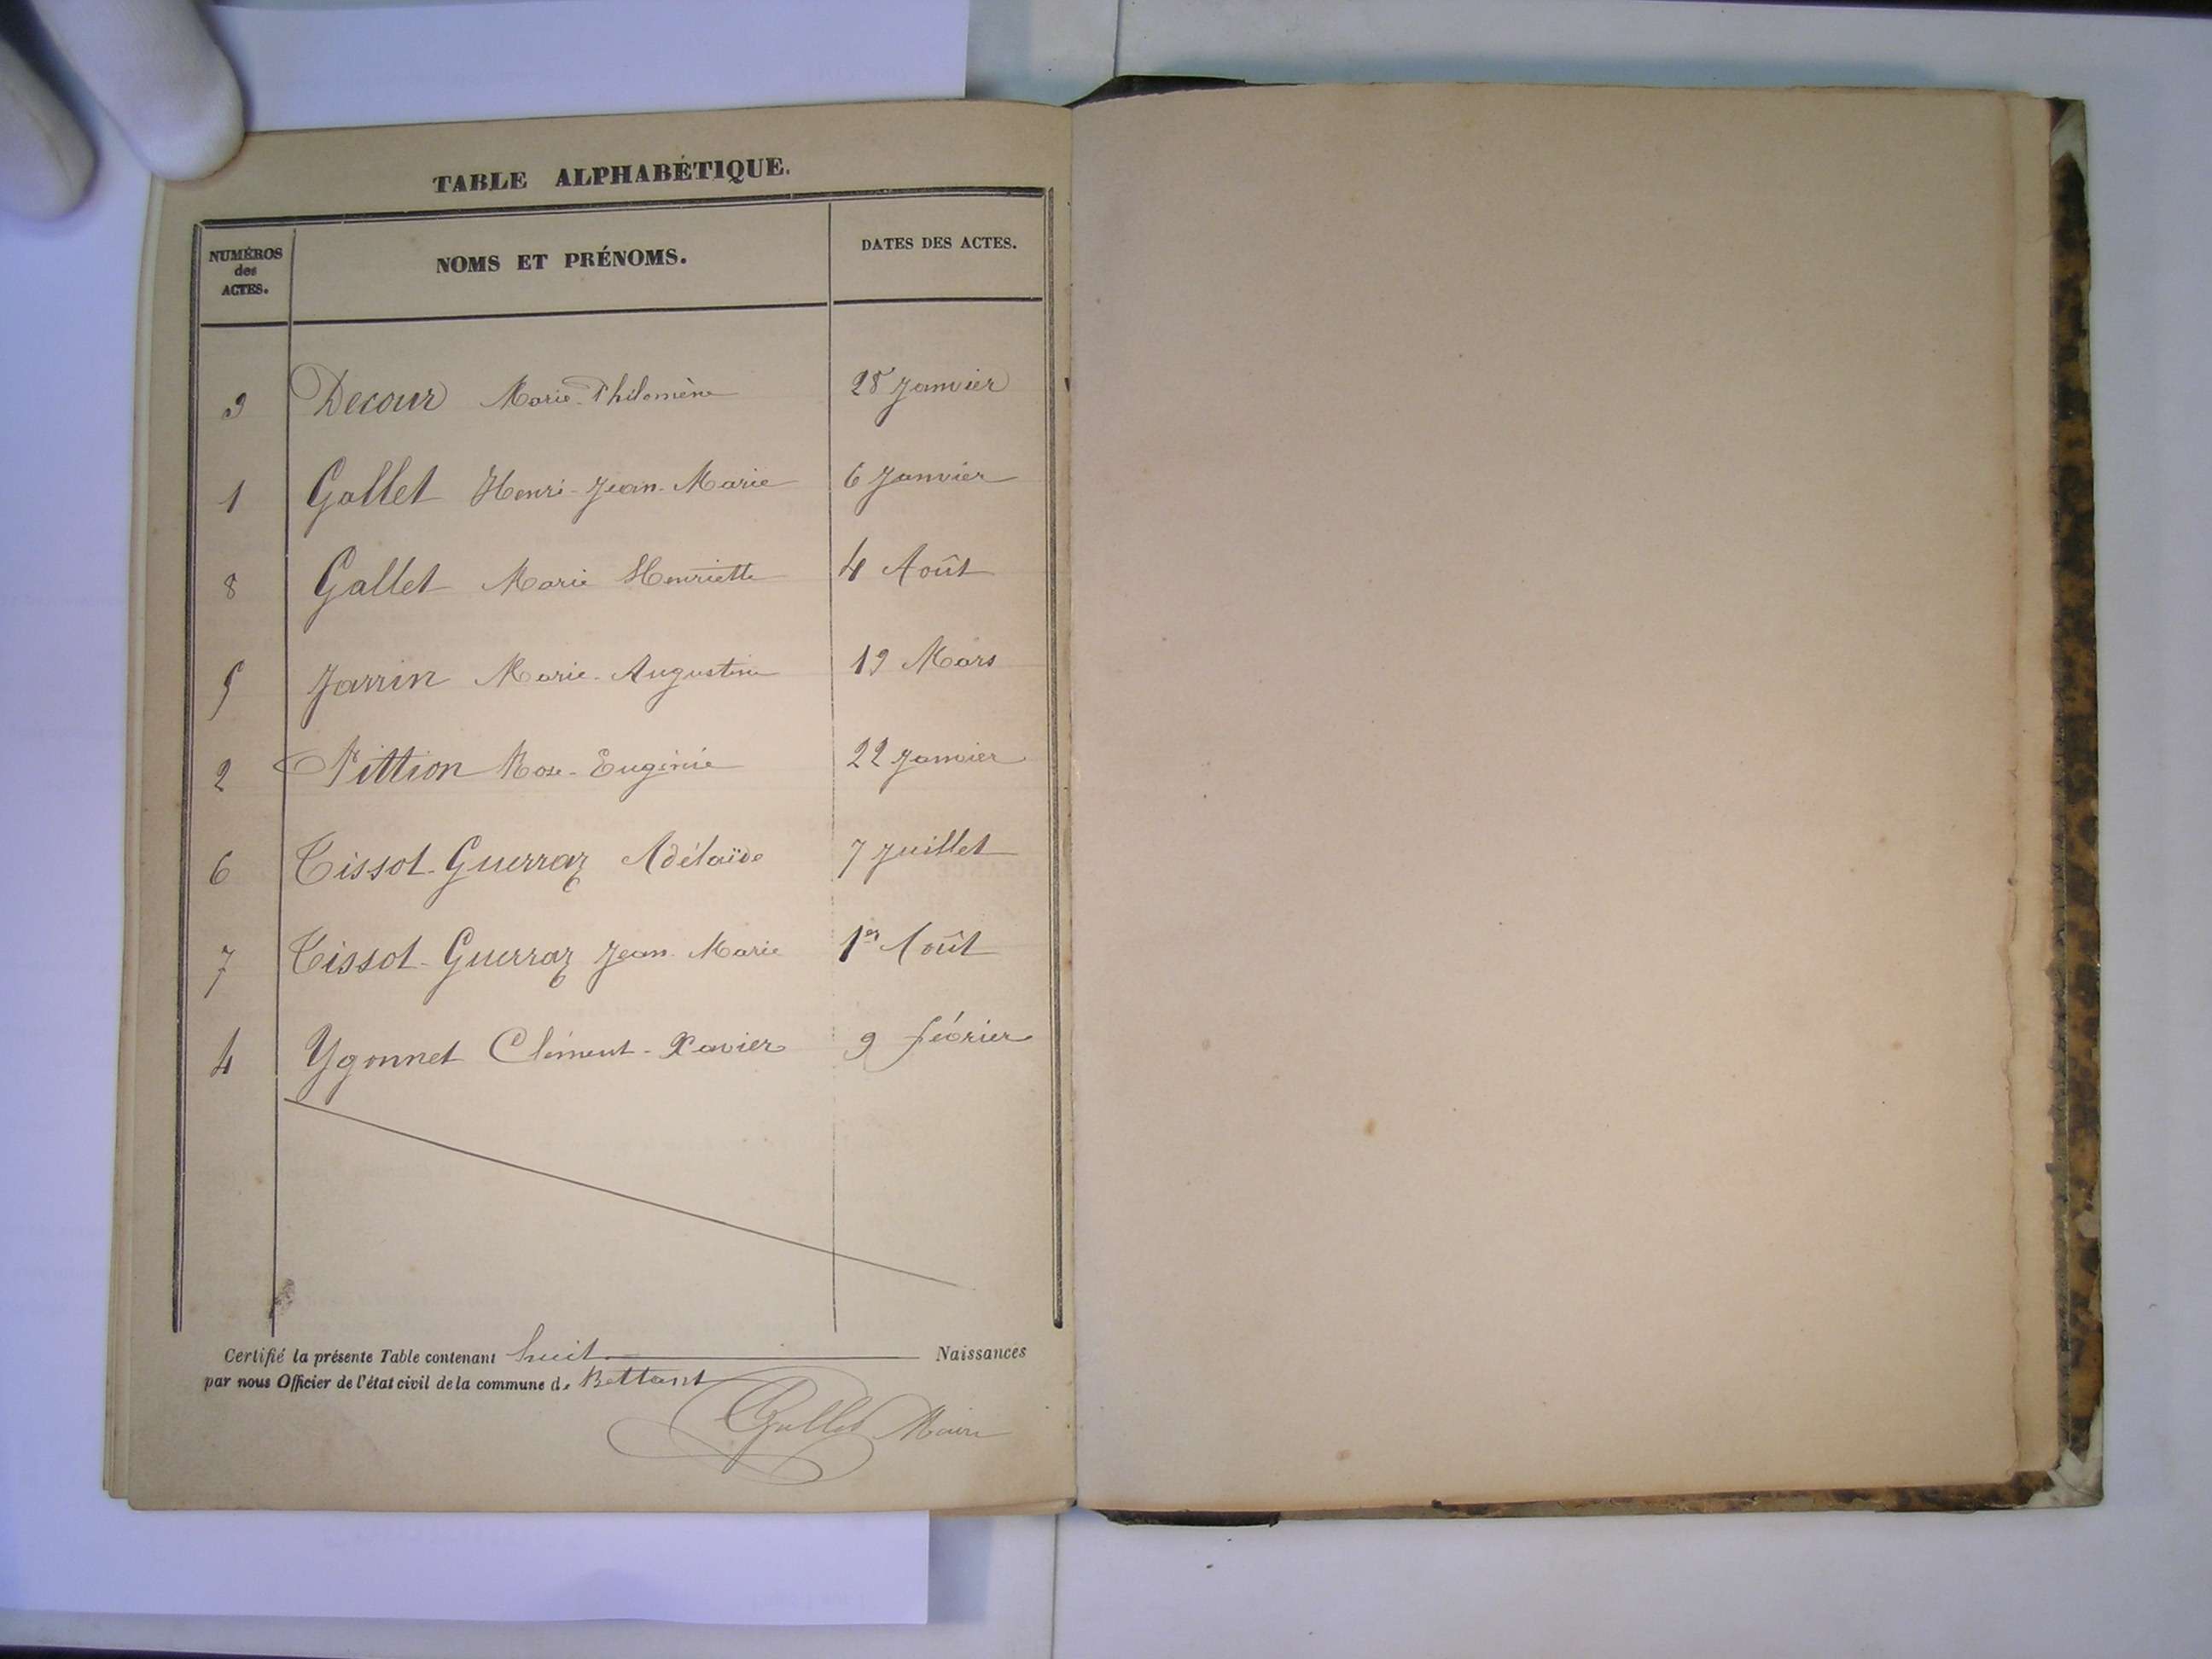 TABLE ALPHABÉTIQUE.
NUMÉROS des ACTES. NOMS ET PRÉNOMS. DATES DES ACTES.
3 Decour Marie-Philomène 28 Janvier
1 Gallet Henri-Jean-Marie 6 Janvier
8 Gallet Marie Henriette 4 Août
5 Jarrin Marie-Augustine 19 Mars
2 Pittion Rose-Eugénie 22 Janvier
6 Tissot-Guerraz Adélaïde 7 Juillet
7 Tissot-Guerraz Jean-Marie 1er Août
4 Ygonnet Clément-Xavier 9 février
Certifié la présente Table contenant huit Naissances
par nous Officier de l'état civil de la commune de Bettant
Gallet Maire